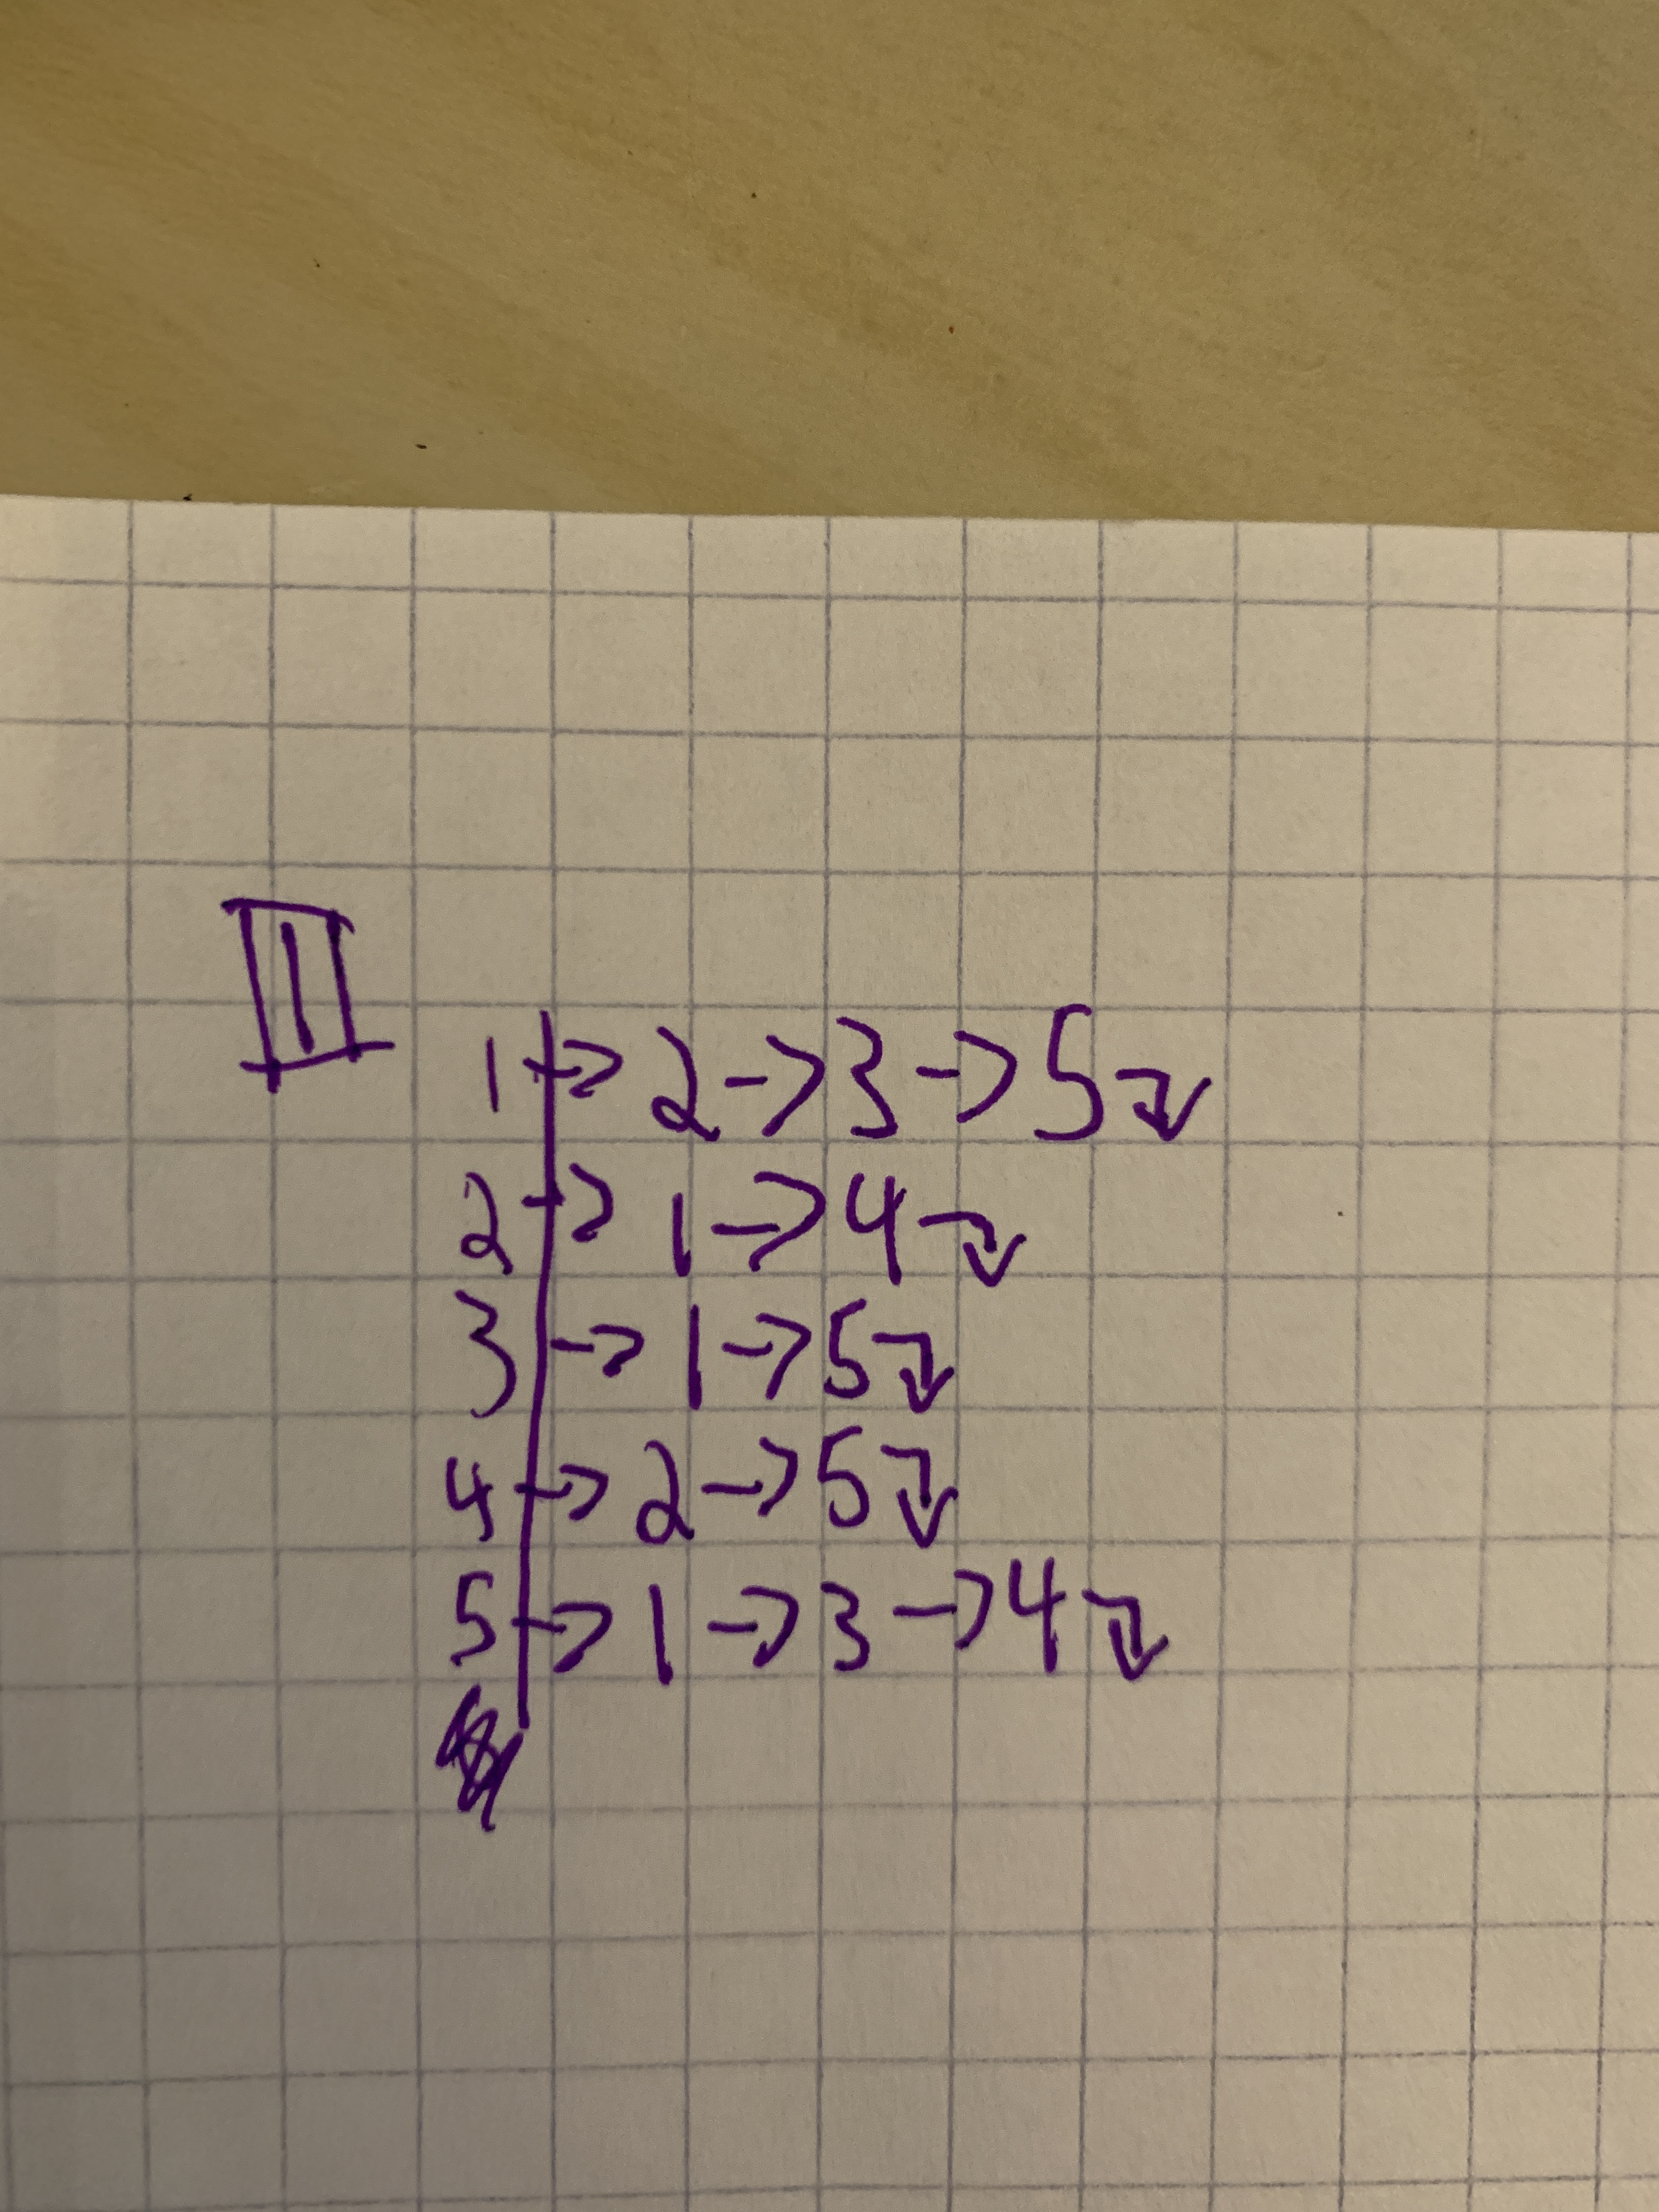 III
1 → 2 → 3 → 5 ↴
2 → 1 → 4 ↴
3 → 1 → 5 ↴
4 → 2 → 5 ↴
5 → 1 → 3 → 4 ↴